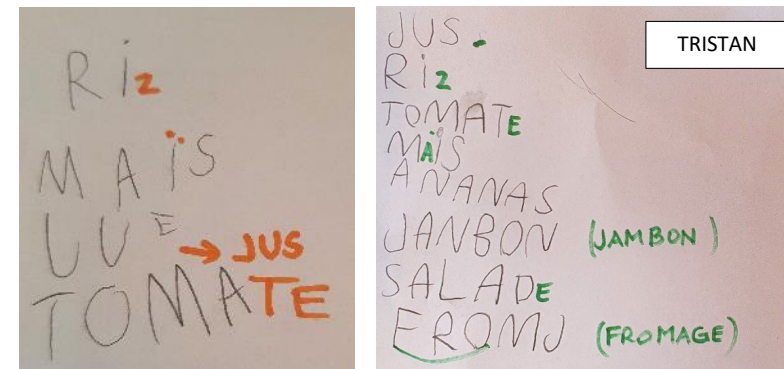 Riz
MAÏS
UUE → JUS
TOMATE
JUS.
TRISTAN
Riz
TOMATE
MAÏS
ANANAS
JANBON (JAMBON)
SALADE
FROMJ (FROMAGE)